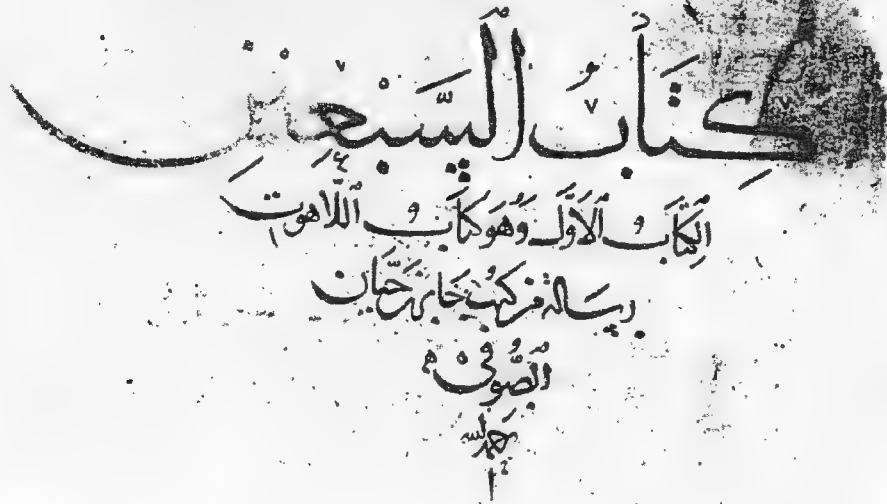 كِتَابُ السَّبْعِينَ
الكِتَابُ الأَوَّلُ وَهُوَ كِتَابُ اللَّاهُوتِ
رِسَالة من كتب جَابر بن حَيَّان
الصُّوفي